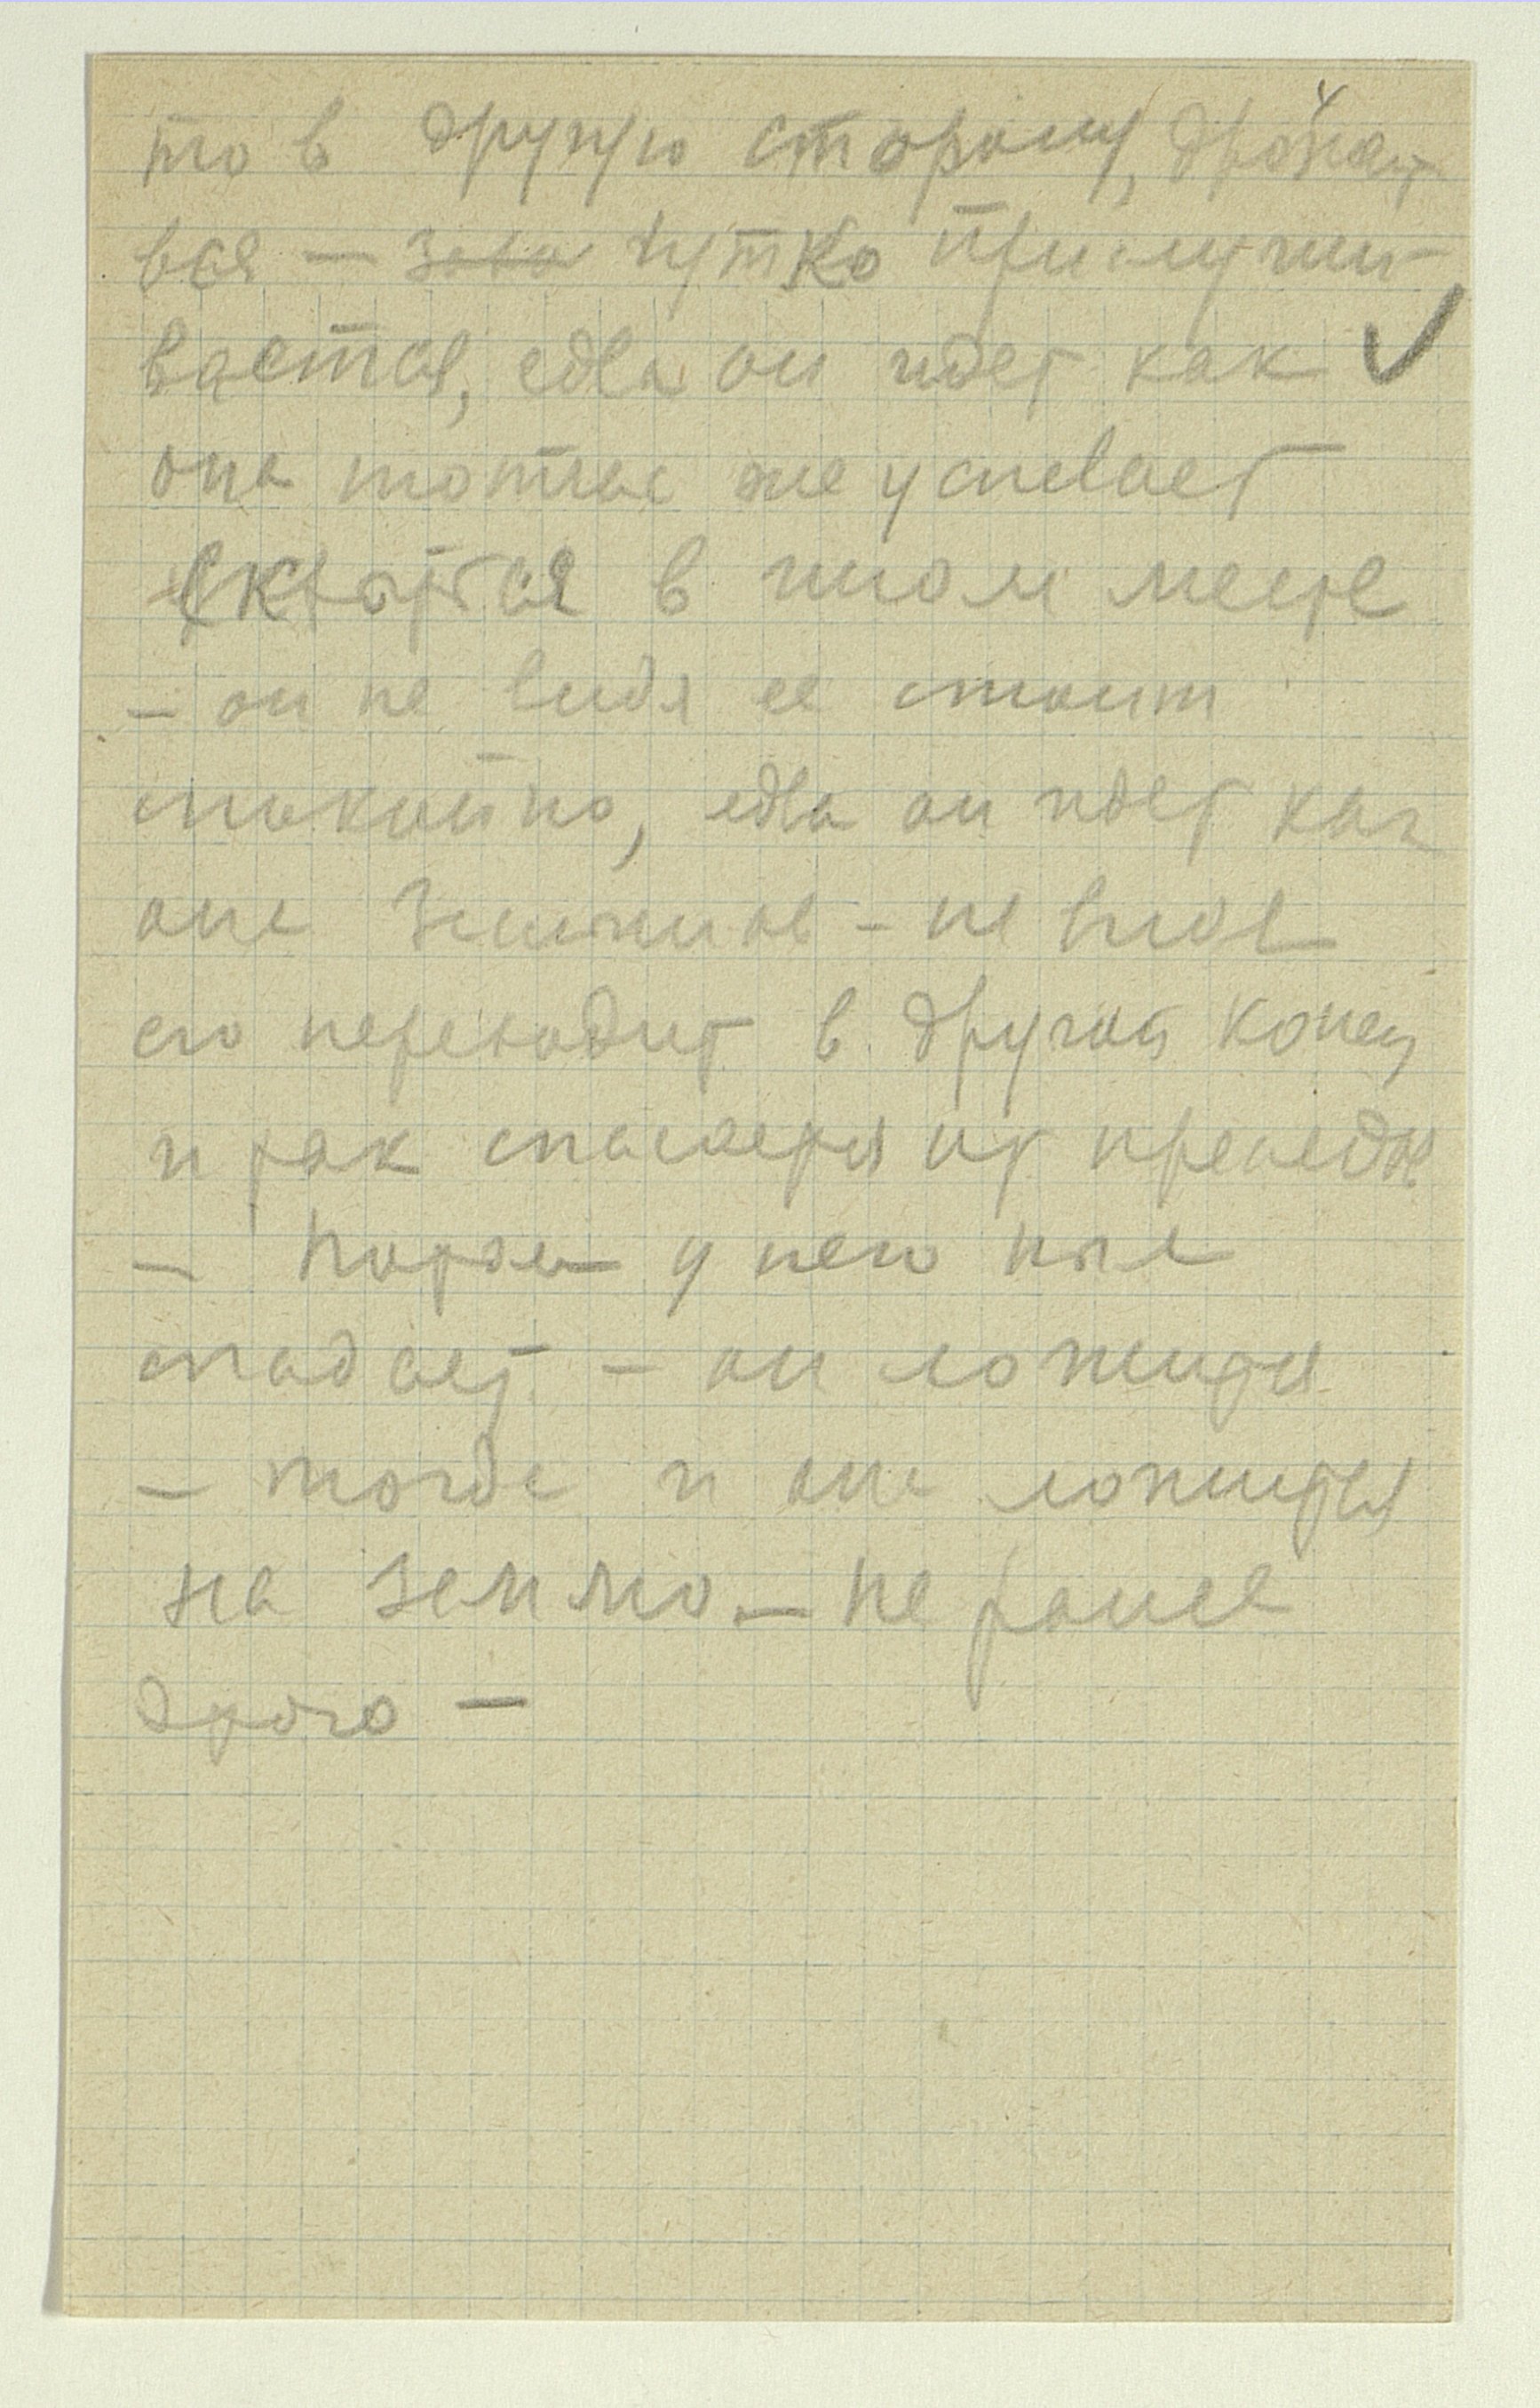 то в другую сторону, дрожит
вся — чутко прислуши-
вается, едва он идет как
она тотчас же успевает
скрыться в ином месте
— он не видя ее стоит
спокойно, едва он идет как
она — не видя
его переходит в другой конец
и так спасается от преследов
— у него пыл
спадает — он ложится
— тогда и она ложится
на землю — не ранее
этого —